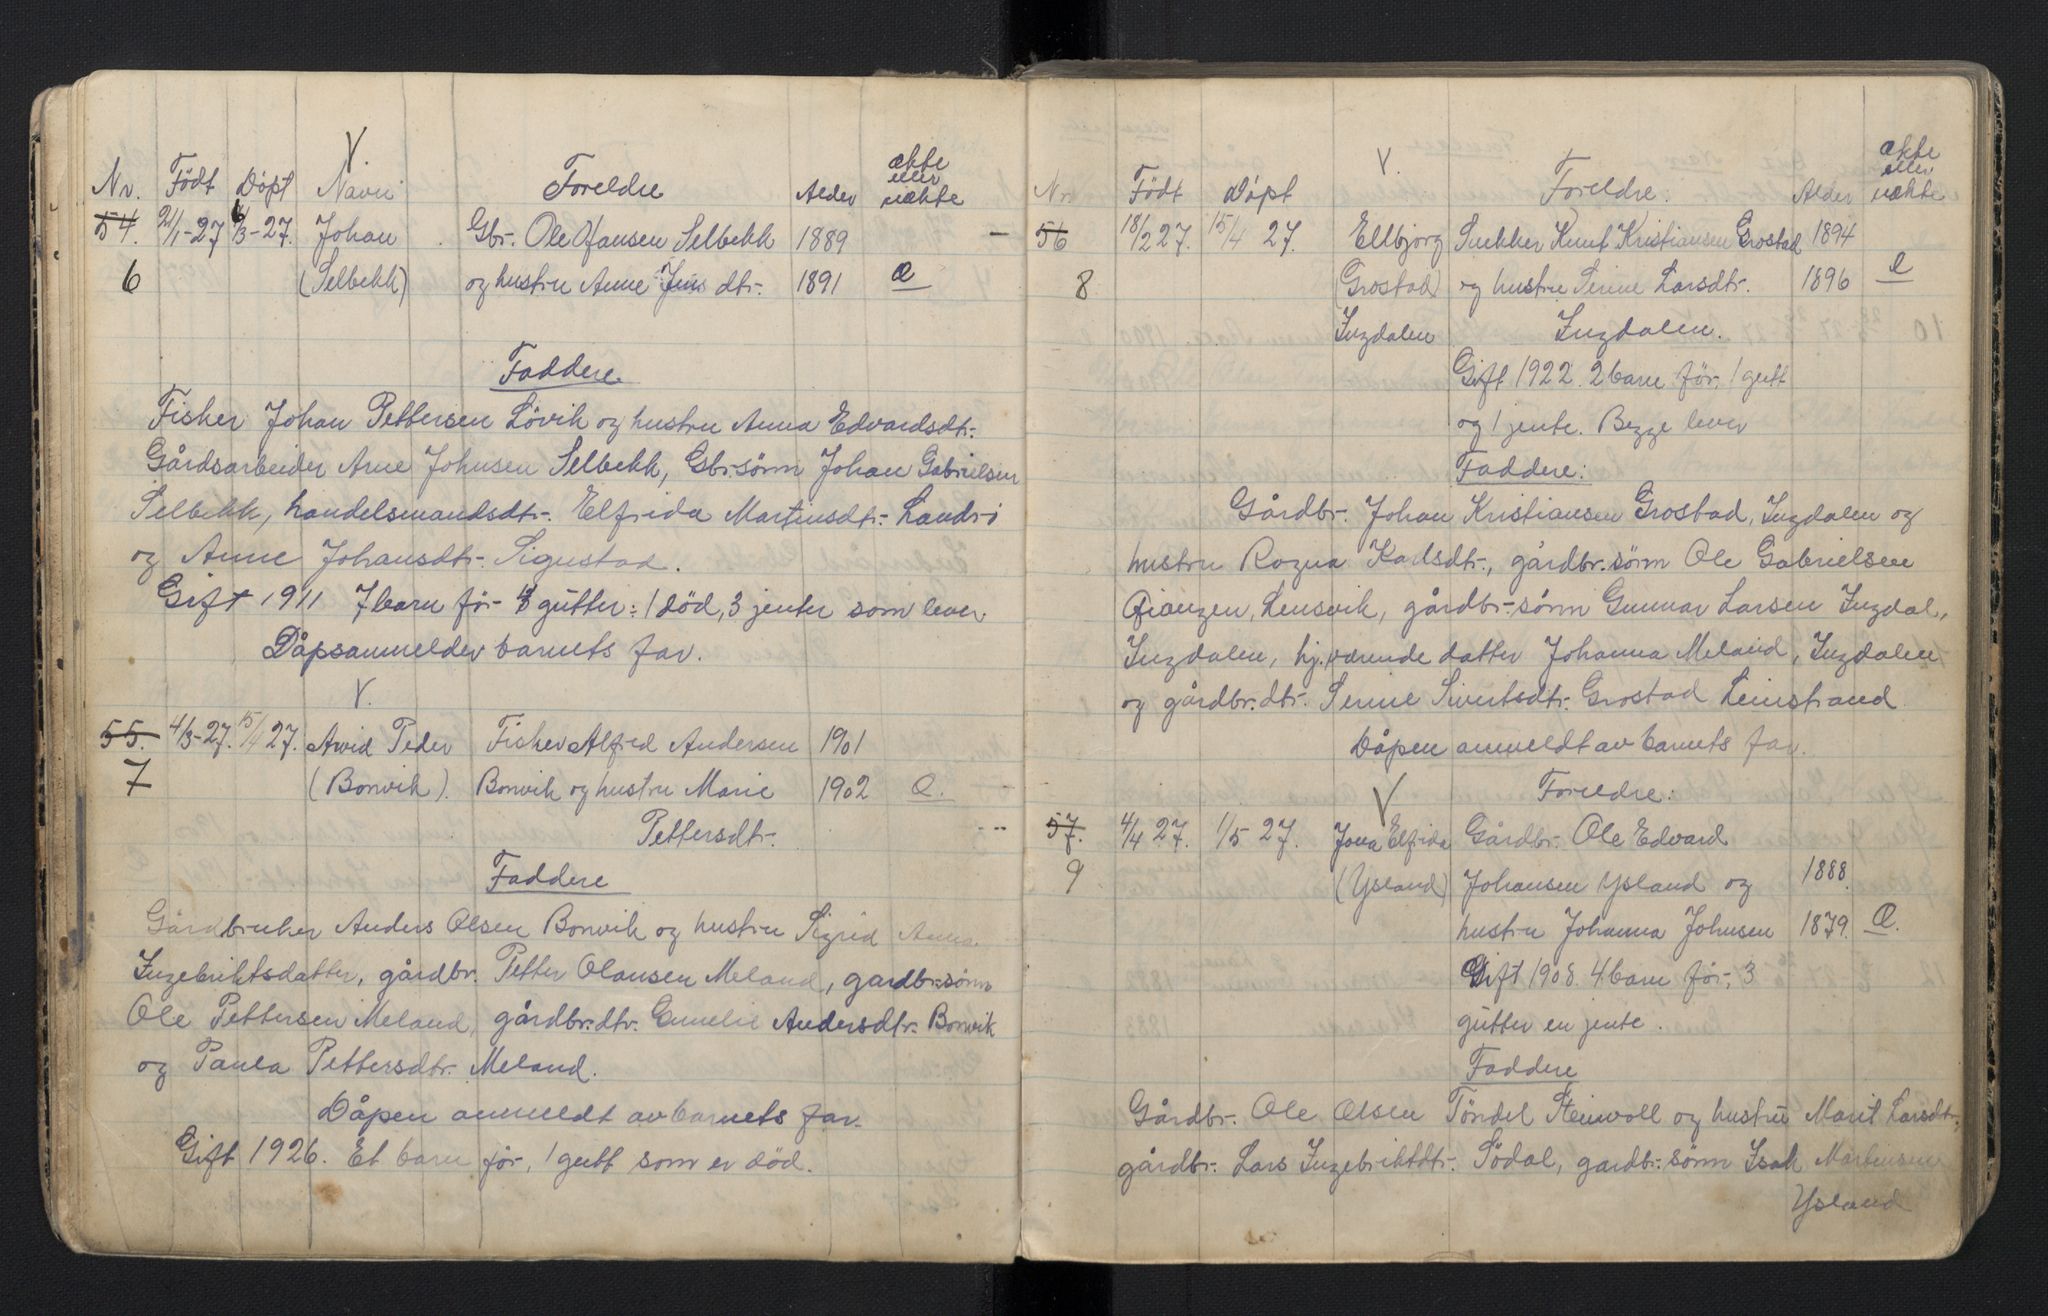 V.
Nr. Födt Döpt Navn Foreldre Alder ekte eller uekte
54. 21/1-27 6/3-27. Johan Gbr. Ole Hansen Selbekk 1889
6 (Selbekk) og hustru Anne Jens dtr. 1891 e
Faddere
Fisker Johan Pettersen Lövik og hustru Anna Edvardsdtr.
Gårdsarbeider Arne Johnsen Selbekk, Gbr.sönn Johan Gabrielsen
Selbekk, handelsmandsdtr. Elfrida Martinsdtr. Landrö
og Anne Johansdtr. Sigustad.
Gift 1911 7 barn för gutter: 1 död, 3 jenter som lever.
Dåpsanmelder barnets far.
V.
55. 4/3-27. 15/4 27. Arvid Peder Fisker Alfred Andersen 1901
7 (Bonvik). Bonvik og hustru Marie 1902 e.
Pettersdtr.
Faddere
Gårdbruker Anders Olsen Bonvik og hustru Sigrid Anna
Ingebriktsdatter, gårdbr. Petter Olausen Meland, gardbr.sönn
Ole Pettersen Meland, gårdbr.dtr. Emelie Andersdtr. Bonvik
og Paula Pettersdtr. Meland.
Dåpen anmeldt av barnets far.
Gift 1926. Et barn för, 1 gutt som er död.
V.
Nr Födt Döpt Foreldre: Alder ekte eller uekte
56 18/2 27. 15/4 27. Ellbjorg Snekker Knut Kristiansen Grostad 1894
8 (Grostad) og hustru Serine Larsdtr. 1896 e
Ingdalen Ingdalen.
Gift 1922. 2 barn för, 1 gutt
og 1 jente. Begge lever
Faddere:
Gårdbr. Johan Kristiansen Grostad, Ingdalen og
hustru Ragna Karlsdtr., gårdbr.sönn Ole Gabrielsen
Gjangen, Lensvik, gårdbr.sönn Gunnar Larsen Ingdal,
Ingdalen, hj.værende datter Johanna Meland, Ingdalen
og gårdbr.dtr. Serine Sivertsdtr. Grostad Leinstrand.
Dåpen anmeldt av barnets far.
V Foreldre:
57. 4/4 27. 1/5 27. Jona Elfrida Gårdbr. Ole Edvard
9 (Ysland) Johansen Ysland og 1888.
hustru Johanna Johnsen 1879. e.
Gift 1908. 4 barn för, 3
gutter en jente.
Faddere
Gårdbr. Ole Olsen Töndel Steinvoll og hustru Marit Larsdtr.,
gårdbr. Lars Ingebriktdtr. Södal, gardbr.sönn Isak Martinsen
Ysland